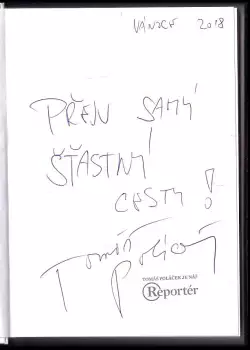 VÁNOCE 2018
PŘEJU SAMÝ
ŠŤASTNÝ
CESTY!
Tomáš
Poláček
TOMÁŠ POLÁČEK ZE NÁS
Reportér